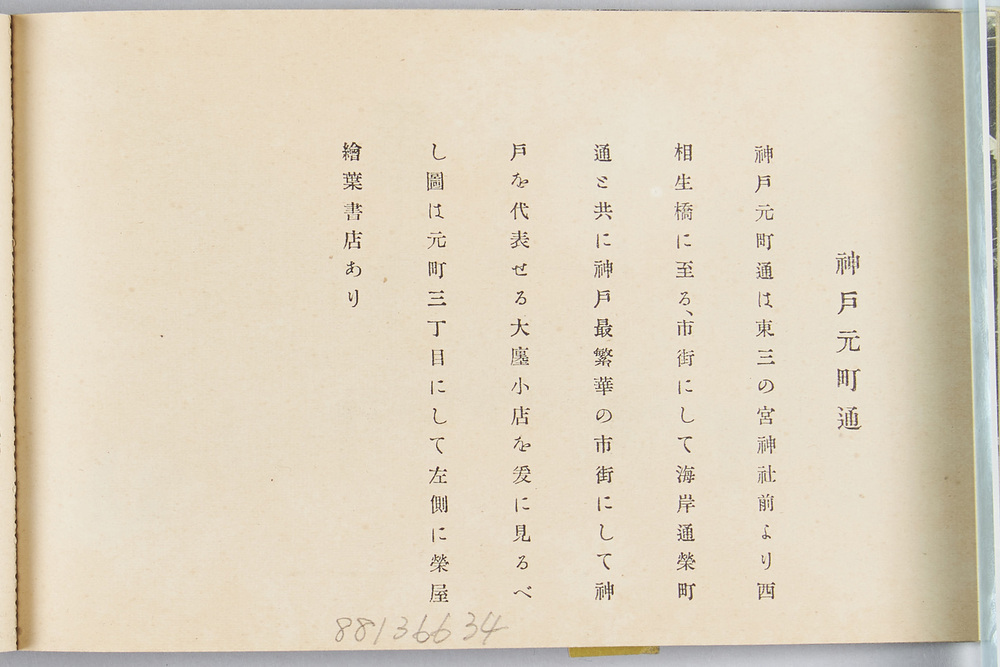 神戸元町通
神戸元町通は東三の宮神社前より西
相生橋に至る、市街にして海岸通榮町
通と共に神戸最繁華の市街にして神
戸を代表せる大廛小店を爰に見るべ
し圖は元町三丁目にして左側に榮屋
繪葉書店あり
88136634